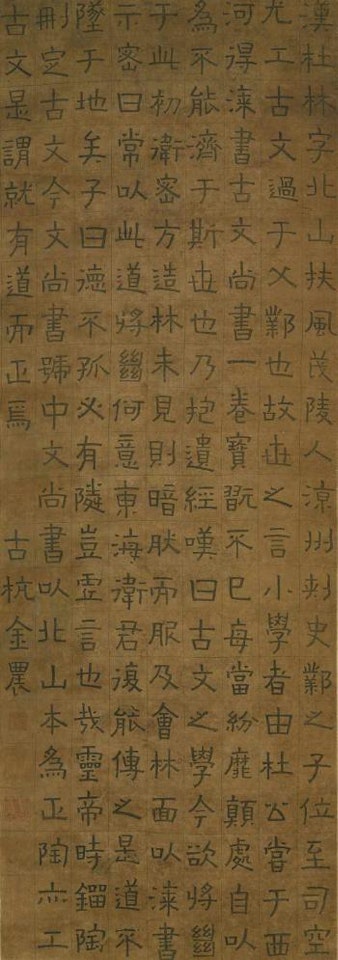 漢杜林字北山扶風茂陵人涼州刺史鄴之子位至司空
尤工古文過于父鄴也故世之言小學者由杜公嘗于西
河得漆書古文尚書一卷寶翫不已每當紛靡顛處自以
為不能濟于斯世也乃抱遺經嘆曰古文之學今欲將𢇍
于此初衛密方造林未見則暗肰而服及會林面以漆書
示密曰常以此道將𢇍何意東海衛君復能傳之是道不
墜于地矣子曰德不孤必有隣豈虛言也哉靈帝時鎦陶
刪定古文今文尚書號中文尚書以北山本為正陶亦工
古文是謂就有道而正焉 古杭金農